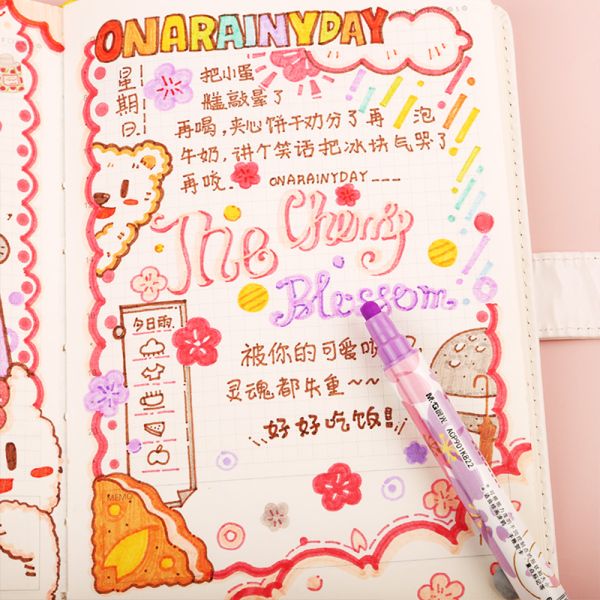 ONARAINYDAY
星期日
把小蛋
糕敲晕了
再喝,夹心饼干劝分了再 泡
牛奶,讲个笑话把冰块气哭了
再咬. ONARAINYDAY---
The Cherry
Blossom
今日雨.
被你的可爱
灵魂都失重~~
好好吃饭!!
MEMO
M&G晨光 AGP901KB22